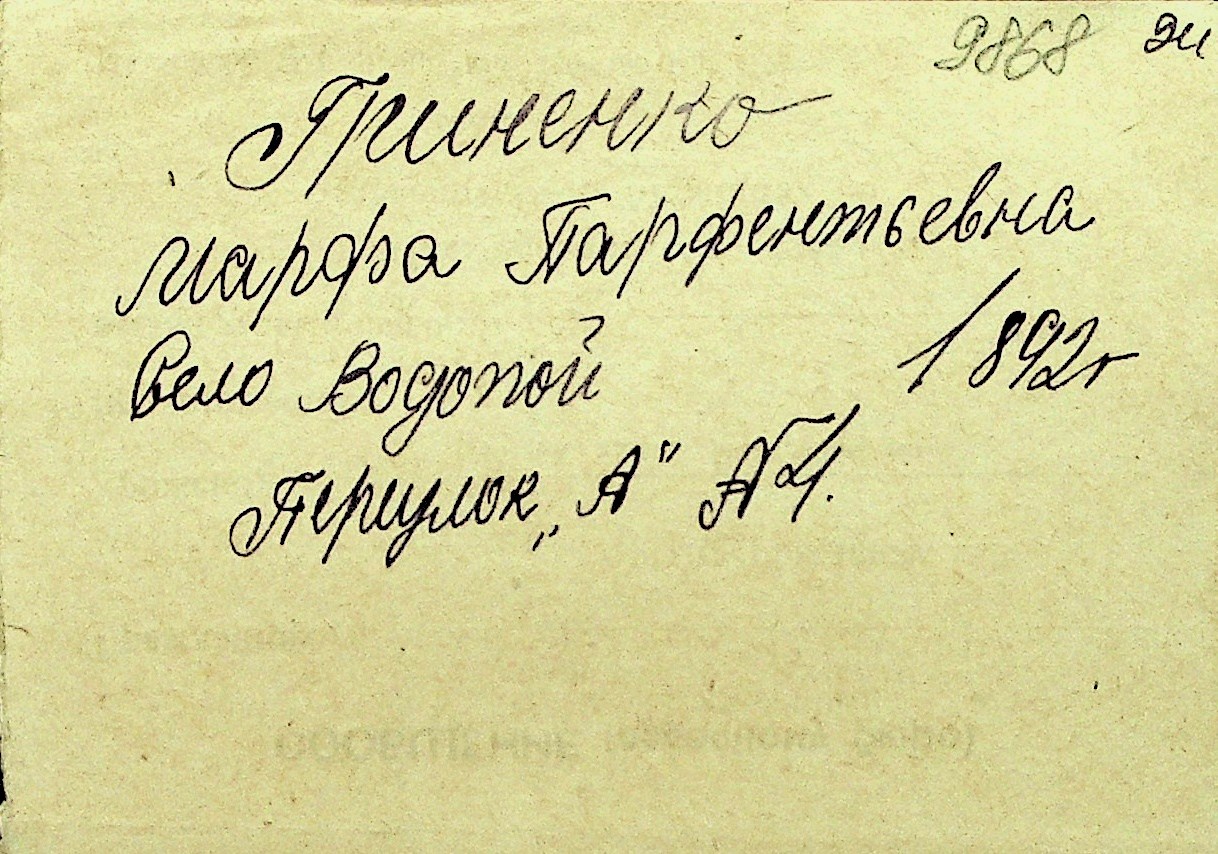 9868 эи
Гриненко
Марфа Парфентьевна
Село Водопой 1892г
Переулок „А" №1.